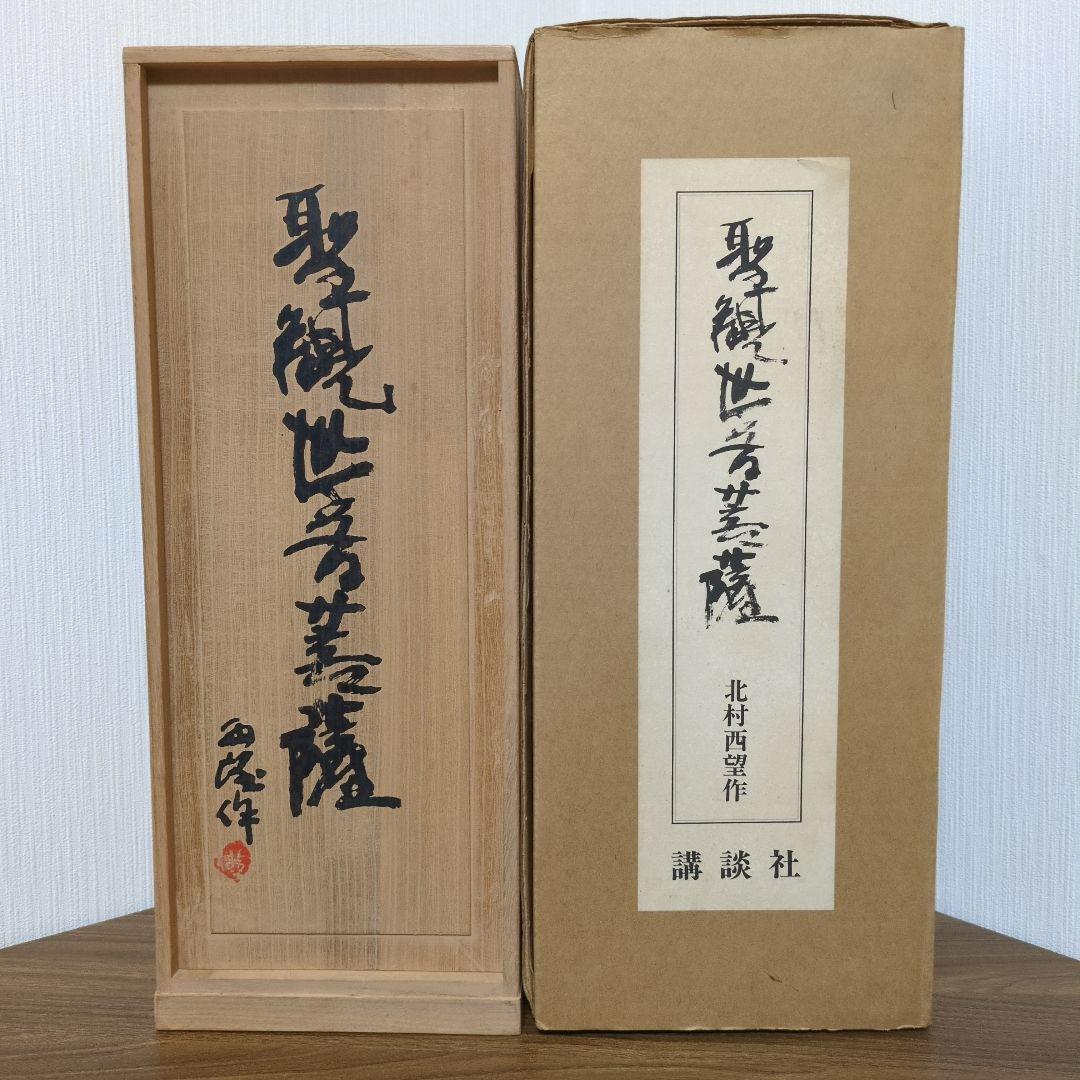 聖観世音菩薩
西望作
聖観世音菩薩
北村西望作
講談社